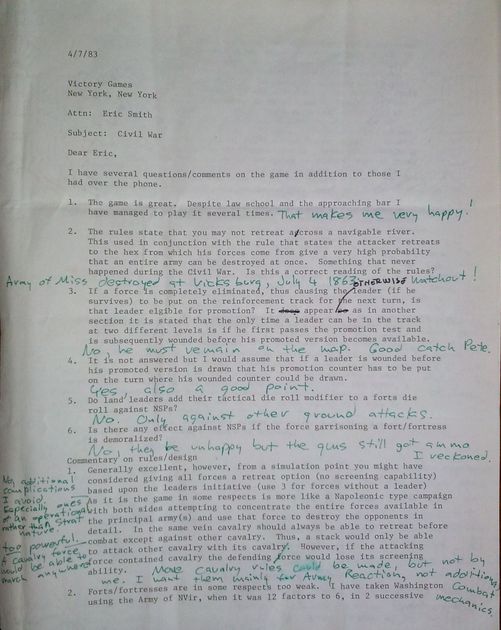 4/7/83
Victory Games
New York, New York
Attn: Eric Smith
Subject: Civil War
Dear Eric,
I have several questions/comments on the game in addition to those I
had over the phone.
1. The game is great. Despite law school and the approaching bar I
have managed to play it several times. That makes me very happy!
2. The rules state that you may not retreat across a navigable river.
This used in conjunction with the rule that states the attacker retreats
to the hex from which his forces come from give a very high probabilty
that an entire army can be destroyed at once. Something that never
happened during the Civil War. Is this a correct reading of the rules?
Army of Miss destroyed at Vicksburg, July 4 1863 Watchout!
3. If a force is completely eliminated, thus causing the leader (if he
survives) to be put on the reinforcement track for the next turn, is
that leader elgible for promotion? It appear OTHERWISE as in another
section it is stated that the only time a leader can be in the track
at two different levels is if he first passes the promotion test and
is subsequently wounded before his promoted version becomes available.
No, he must remain on the map. Good Catch Pete.
4. It is not answered but I would assume that if a leader is wounded before
his promoted version is drawn that his promotion counter has to be put
on the turn where his wounded counter could be drawn.
Yes, also a good point.
5. Do land leaders add their tactical die roll modifier to a forts die
roll against NSPs?
No. Only against other ground attacks.
6. Is there any effect against NSPs if the force garrisoning a fort/fortress
is demoralized?
No, they be unhappy but the guns still got ammo
I reckoned.
Commentary on rules/design
1. Generally excellent, however, from a simulation point you might have
considered giving all forces a retreat option (no screening capability)
based upon the leaders initiative (use 3 for forces without a leader)
As it is the game in some respects is more like a Napoleonic type campaign
with both sides attempting to concentrate the entire forces available in
the principal army(s) and use that force to destroy the opponents in
detail. In the same vein cavalry should always be able to retreat before
combat except against other cavalry. Thus, a stack would only be able
to attack other cavalry with its cavalry. However, if the attacking
force contained cavalry the defending force would lose its screening
ability. More Cavalry rules could be made, but not by
me. I want them mainly for Army Reaction, not additional
Combat
mechanics.
No additional
complications
I avoid.
Especially ones
of an operational
rather than Strat
nature.
too powerful-
A cavalry force
would be able to
march anywhere
2. Forts/fortresses are in some respects too weak. I have taken Washington
using the Army of NVir, when it was 12 factors to 6, in 2 successive